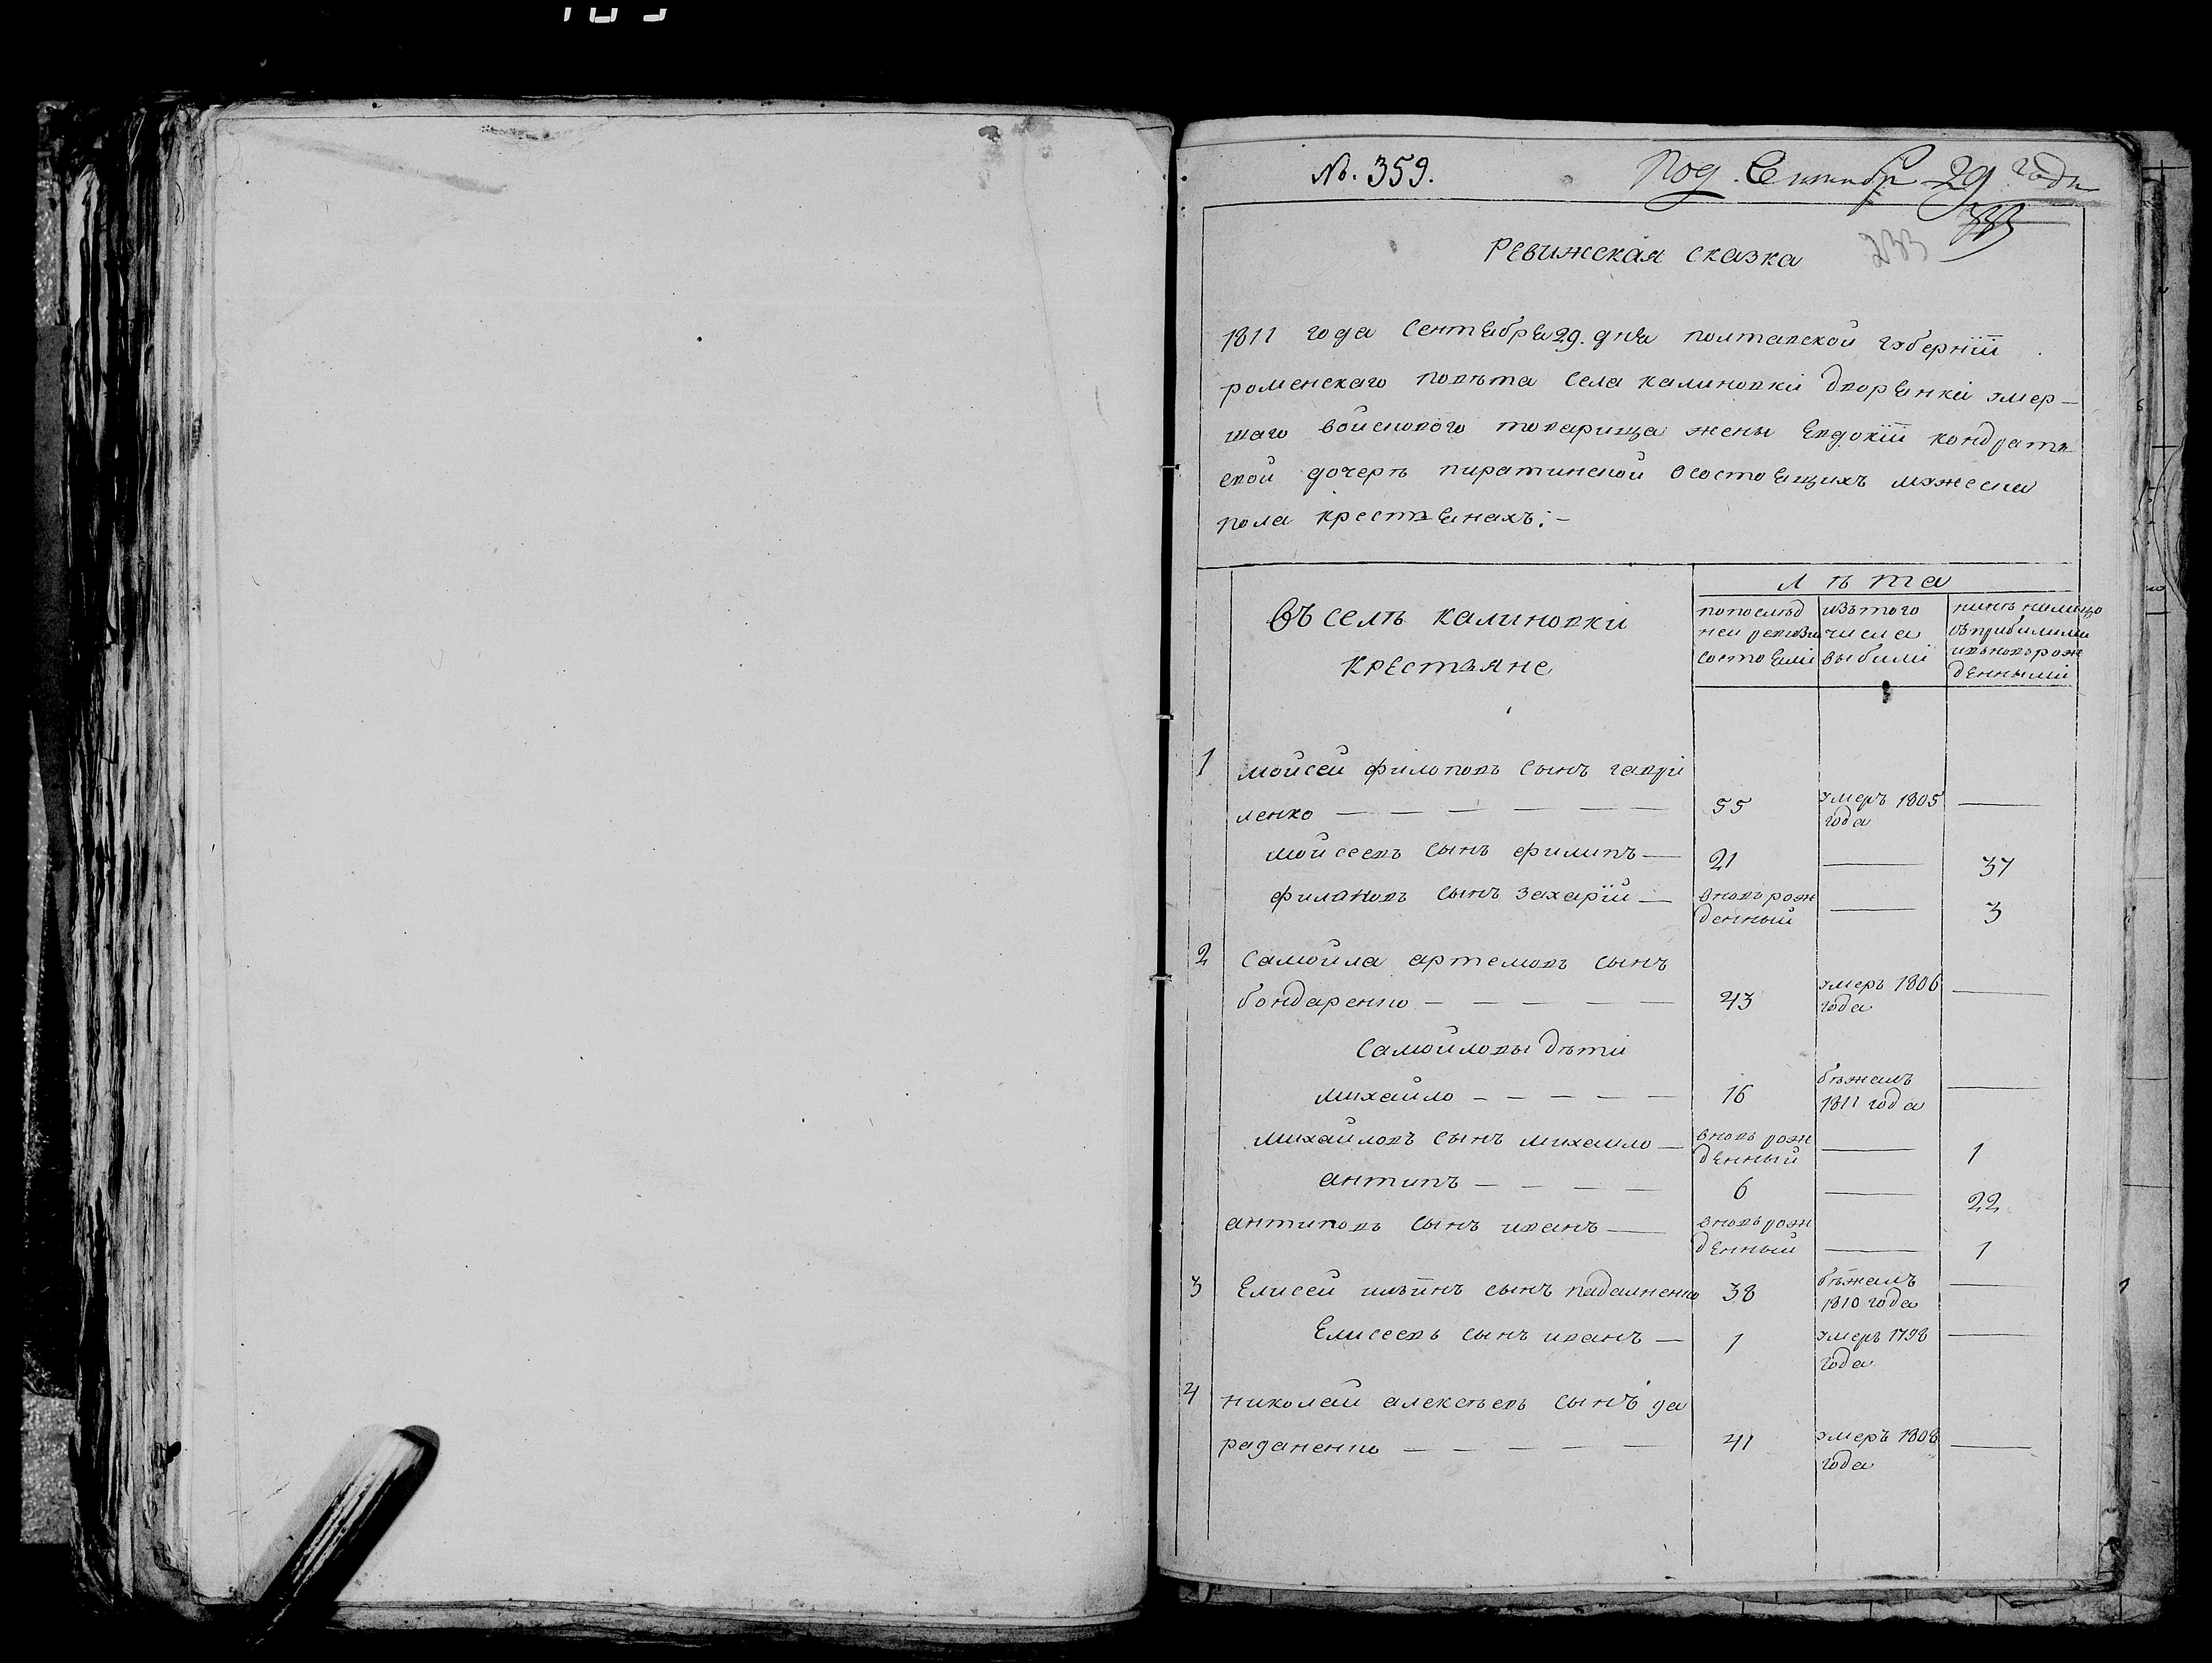 №. 359.
Под. Сентябр 29 года
333
233
Ревижская сказка
1811 года сентября 29. дня полтавской губернїи
роменскаго повѣта села калиновкі дворянкі умер-
шаго войскового товарища жены Евдокїи кондратъ
евой дочерѣ пиратинской осостоящихъ мужеска
пола крестьянахъ:-
Въ селѣ калиновкі
крестьяне
лѣта
попослѣд
ней ревизи
состоялі
изътого
числа
выбилі
нинѣ налицо
съприбилими
ивьновьрож
денныміі
1 мойсей филоповъ сынъ гаврі
ленко — — — — — — 55 умеръ 1805 года —
мойсеевъ сынъ филипъ — 21 — 37
филаповъ сынъ захарїй — вновьрож
денный — 3
2 самойла артемовъ сынъ
бондаренко — — — — — 43 умеръ 1806 года —
самойловы дѣти
михайло — — — — — 16 бѣжалъ 1811 года —
михайловъ сынъ михаило — вновь рож
денный — 1
антипъ — — — — 6 — 22
антиповъ сынъ иванъ — вновьрож
денный — 1
3 Елисей ильинъ сынъ 38 бѣжалъ 1810 года —
Елисеевъ сынъ иванъ — 1 умеръ 1798 года —
4 николай алексѣевъ сынъ да
раганенко — — — — — 41 умеръ 1808 года —